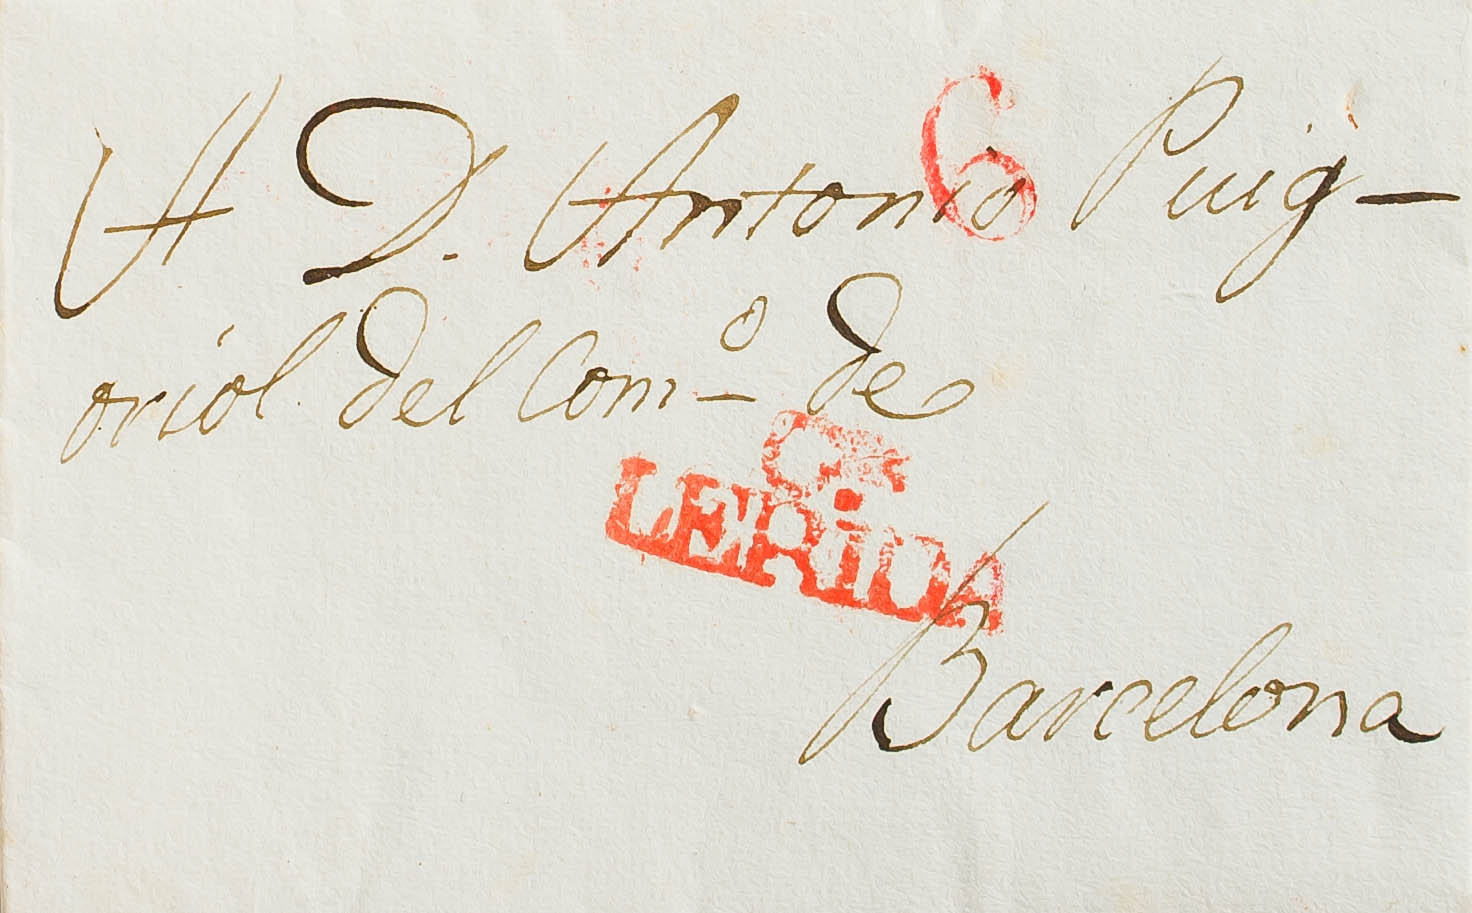 6
A D. Antonio Puig-
oriol del Com.º de
LERiDA
Barcelona